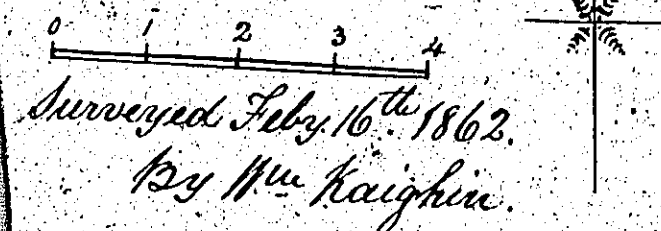 0 1 2 3 4
Surveyed Feby. 16th. 1862.
By Wm Kaighin.